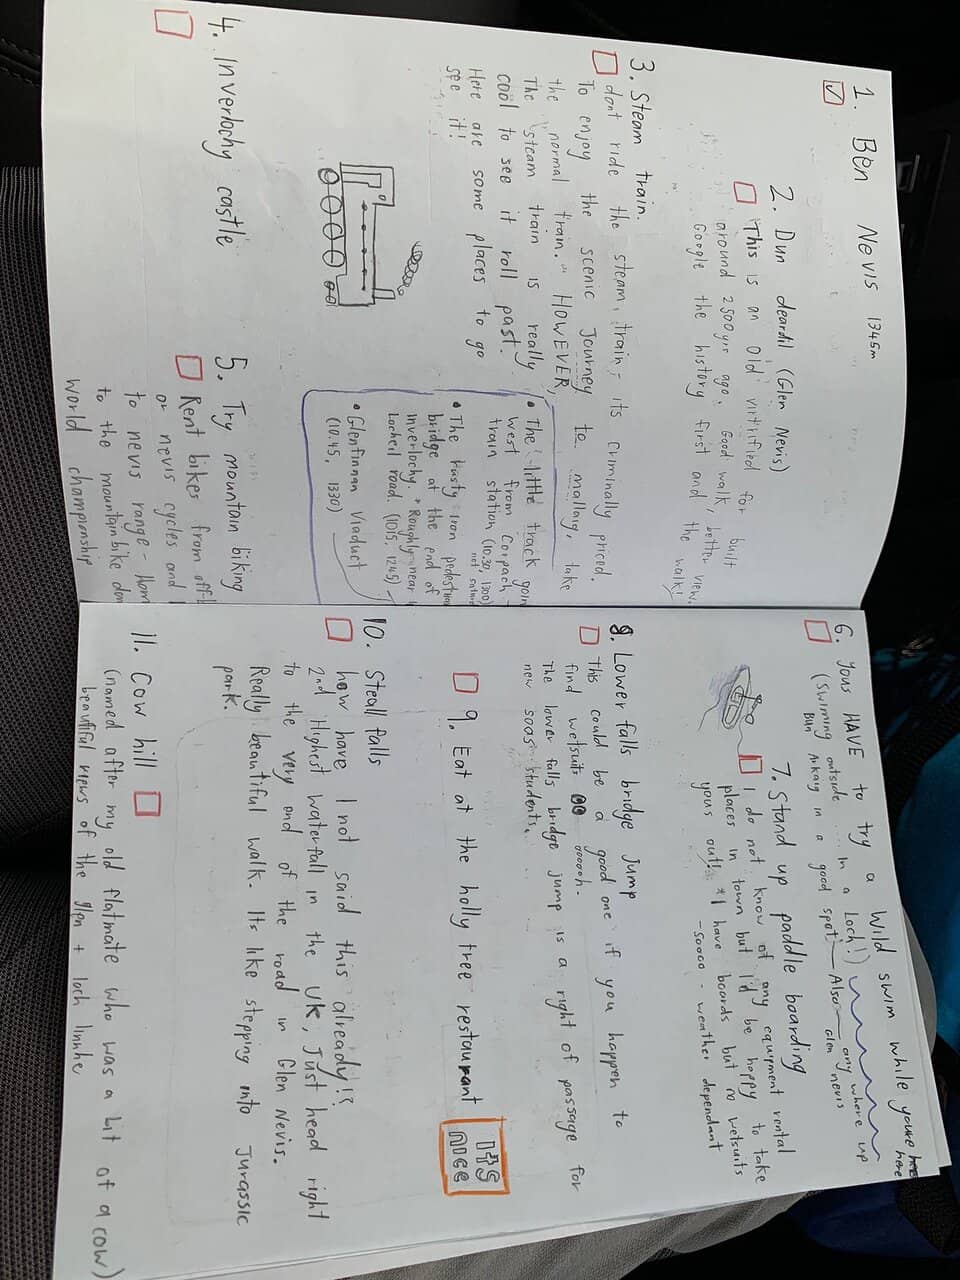 1. Ben Nevis 1345m
2. Dun deardil (Glen Nevis)
This is an old vitrified for
built around 2500yr ago. Good walk, better view.
Google the history first and the walk!
3. Steam train.
dont ride the steam train, its criminally priced.
To enjoy the scenic journey to mallaig, take
the normal train. HOWEVER,
The steam train is really
cool to see it roll past.
Here are some places to go
see it!
• The little track goin
west from Corpach
train station (10.30, 1300)
• The Rusty iron pedestria
bridge at the end of
inverlochy. * Roughly near
Locheil road. (1015, 1245)
• Glenfinnan Viaduct
(1045, 1330)
4. Inverlochy castle
5. Try mountain biking
Rent bikes from off-
or nevis cycles and
to nevis range - hom
to the mountain bike dow
world championship
6. Yous HAVE to try a wild swim while youre here
(swiming outside ... in a Loch!)
Bun Arkaig in a good spot - Also any where up
Glen nevis
7. Stand up paddle boarding
I do not know of any equipment rental
places in town but I'd be happy to take
yous out! *I have boards but no wetsuits
- soooo - weather dependant
8. Lower falls bridge jump
This could be a good one if you happen to
find wetsuits oooooh.
The lower falls bridge jump is a right of passage for
new soas students.
9. Eat at the holly tree restaurant
ITS
NICE
10. Steall falls
how have I not said this already!?
2nd Highest waterfall in the UK, Just head right
to the very end of the road in Glen Nevis.
Really beautiful walk. Its like stepping into Jurassic
park.
11. Cow hill
(named after my old flatmate who was a bit of a cow)
beautiful views of the glen + loch linnhe